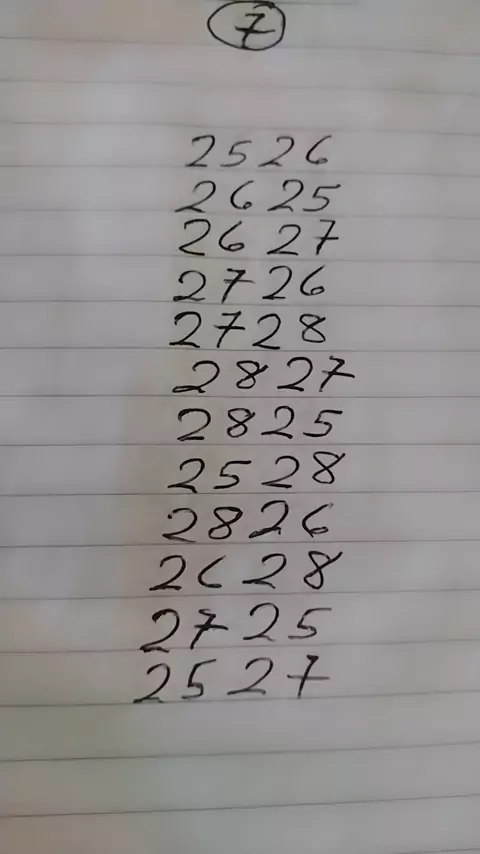 7
2526
2625
2627
2726
2728
2827
2825
2528
2826
2628
2725
2527